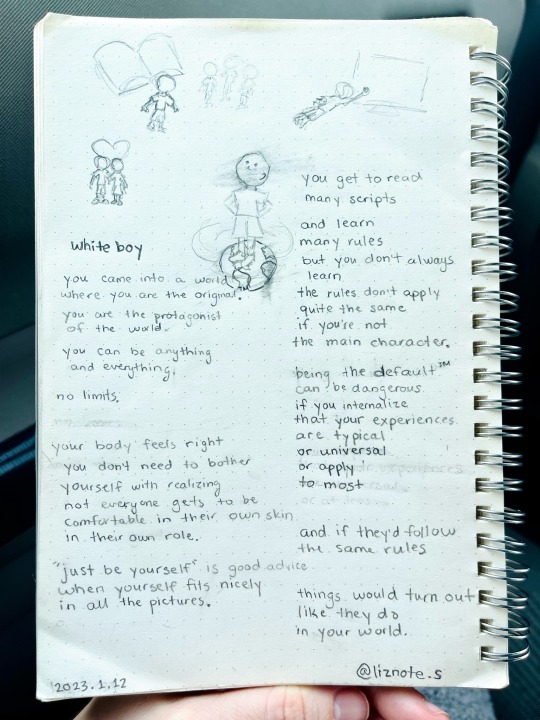 white boy
you came into a world
where you are the original.™
you are the protagonist
of the world.
you can be anything
and everything.
no limits.
your body feels right
you don't need to bother
yourself with realizing
not everyone gets to be
comfortable in their own skin
in their own role.
"just be yourself" is good advice
when yourself fits nicely
in all the pictures.
2023.1.12
you get to read
many scripts
and learn
many rules
but you don't always
learn
the rules don't apply
quite the same
if you're not
the main character.
being the default™
can be dangerous
if you internalize
that your experiences
are typical
or universal
or apply
to most
and if they'd follow
the same rules
things would turn out
like they do
in your world.
@liznote.s